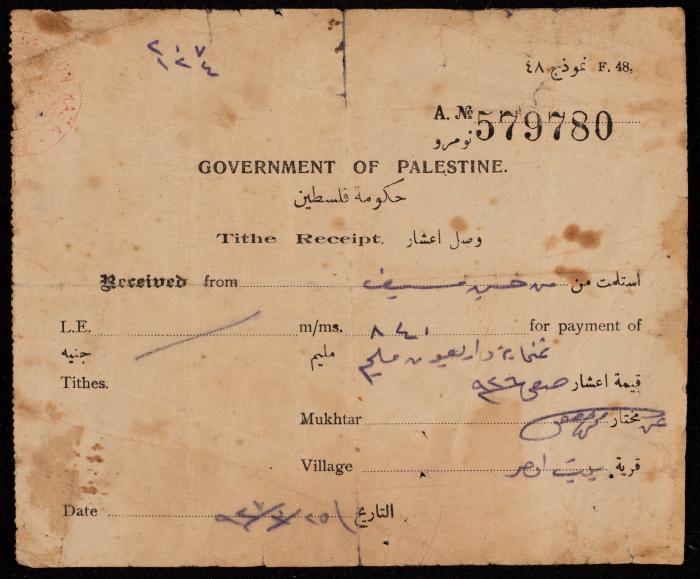 نموذج ٤٨ F. 48.
A. № 579780
نومرو
GOVERNMENT OF PALESTINE.
حكومة فلسطين
Tithe Receipt. وصل اعشار
Received from استلمت من حسين
L.E. m/ms. ٨٤٠ for payment of
جنيه مليم ثمنماية واربعون مليم
Tithes. قيمة اعشار ٩٢٦
Mukhtar مختار
Village قرية بيت
Date التاريخ